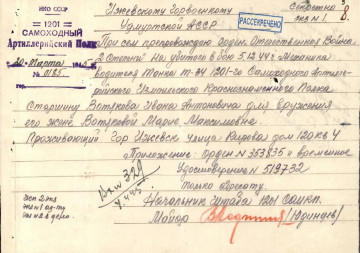 НКО СССР
1201
САМОХОДНЫЙ
Артиллерийский Полк
20 Марта 1945
№ 0185
Ижевскому горвоенкому
Удмуртской АССР
Секретно
экз N 1.
РАССЕКРЕЧЕНО
При сем препровождаю орден "Отечественная Война
2 Степени" На убитого в бою 5.12.44 г Механика
водителя Танка Т-34 1201-го Самоходного Артилле-
рийского Краснознаменного Полка
Старшину Вотякова Ивана Антоновича для вручения
его жене Вотяковой Марие Максимовне
Проживающий Гор Ижевск улица Кирова дом 120 кв 4
Приложение Орден N 353835 и временное
Удостоверение N 519732
только адресату.
Начальник штаба 1201
Майор
4.4.45
отп 2 экз
экз N 1 адр-ту
экз N 2 в дело